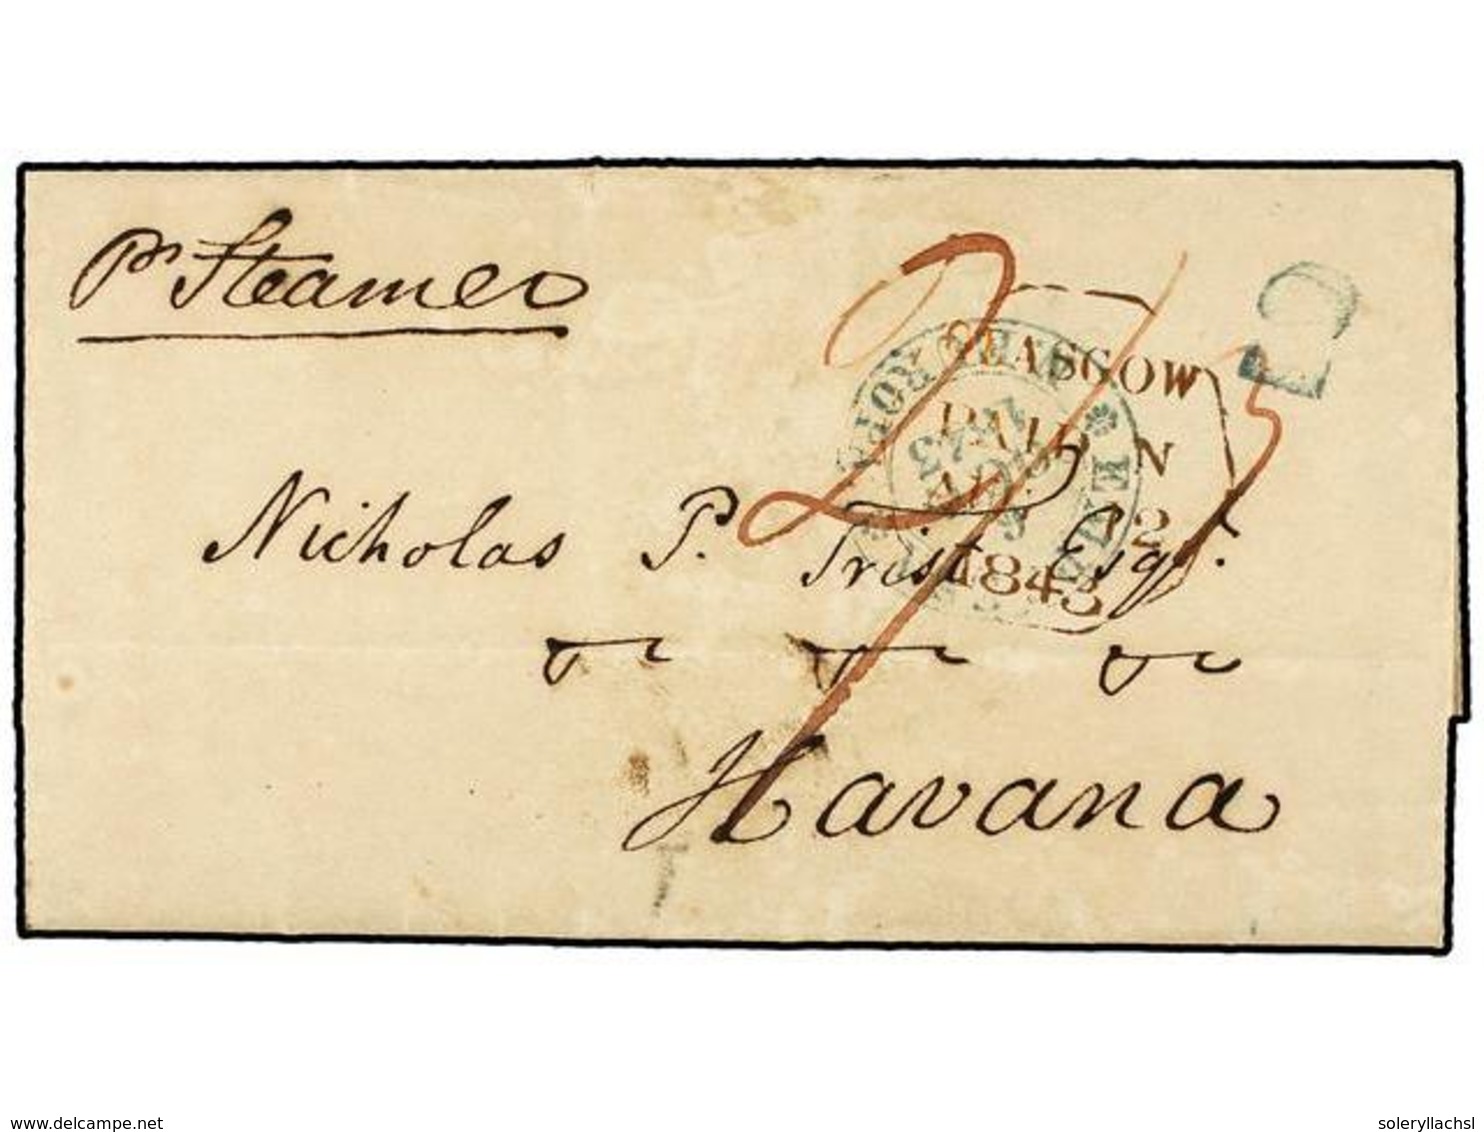 Pr Steamer
GLASGOW
PAID N
2
1843
Nicholas P. Trist Esqr.
Havana
www.delcampe.net
soleryllachsl